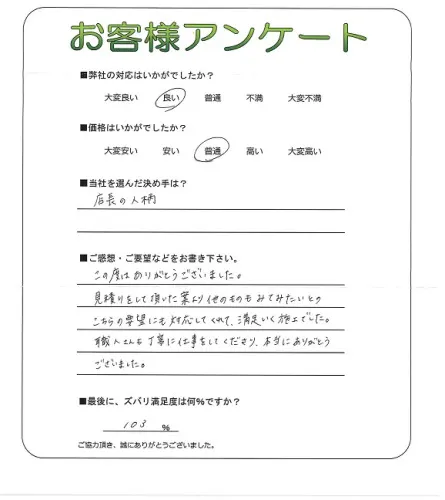 お客様アンケート
■弊社の対応はいかがでしたか？
大変良い　良い　普通　不満　大変不満
■価格はいかがでしたか？
大変安い　安い　普通　高い　大変高い
■当社を選んだ決め手は？
店長の人柄
■ご感想・ご要望などをお書き下さい。
この度はありがとうございました。
見積りをして頂いた業より他のものもみてみたいとの
こちらの要望にも対応してくれて、満足いく施工でした。
職人さんも丁寧に仕事をしてくださり、本当にありがとう
ございました。
■最後に、ズバリ満足度は何%ですか？
103 %
ご協力頂き、誠にありがとうございました。